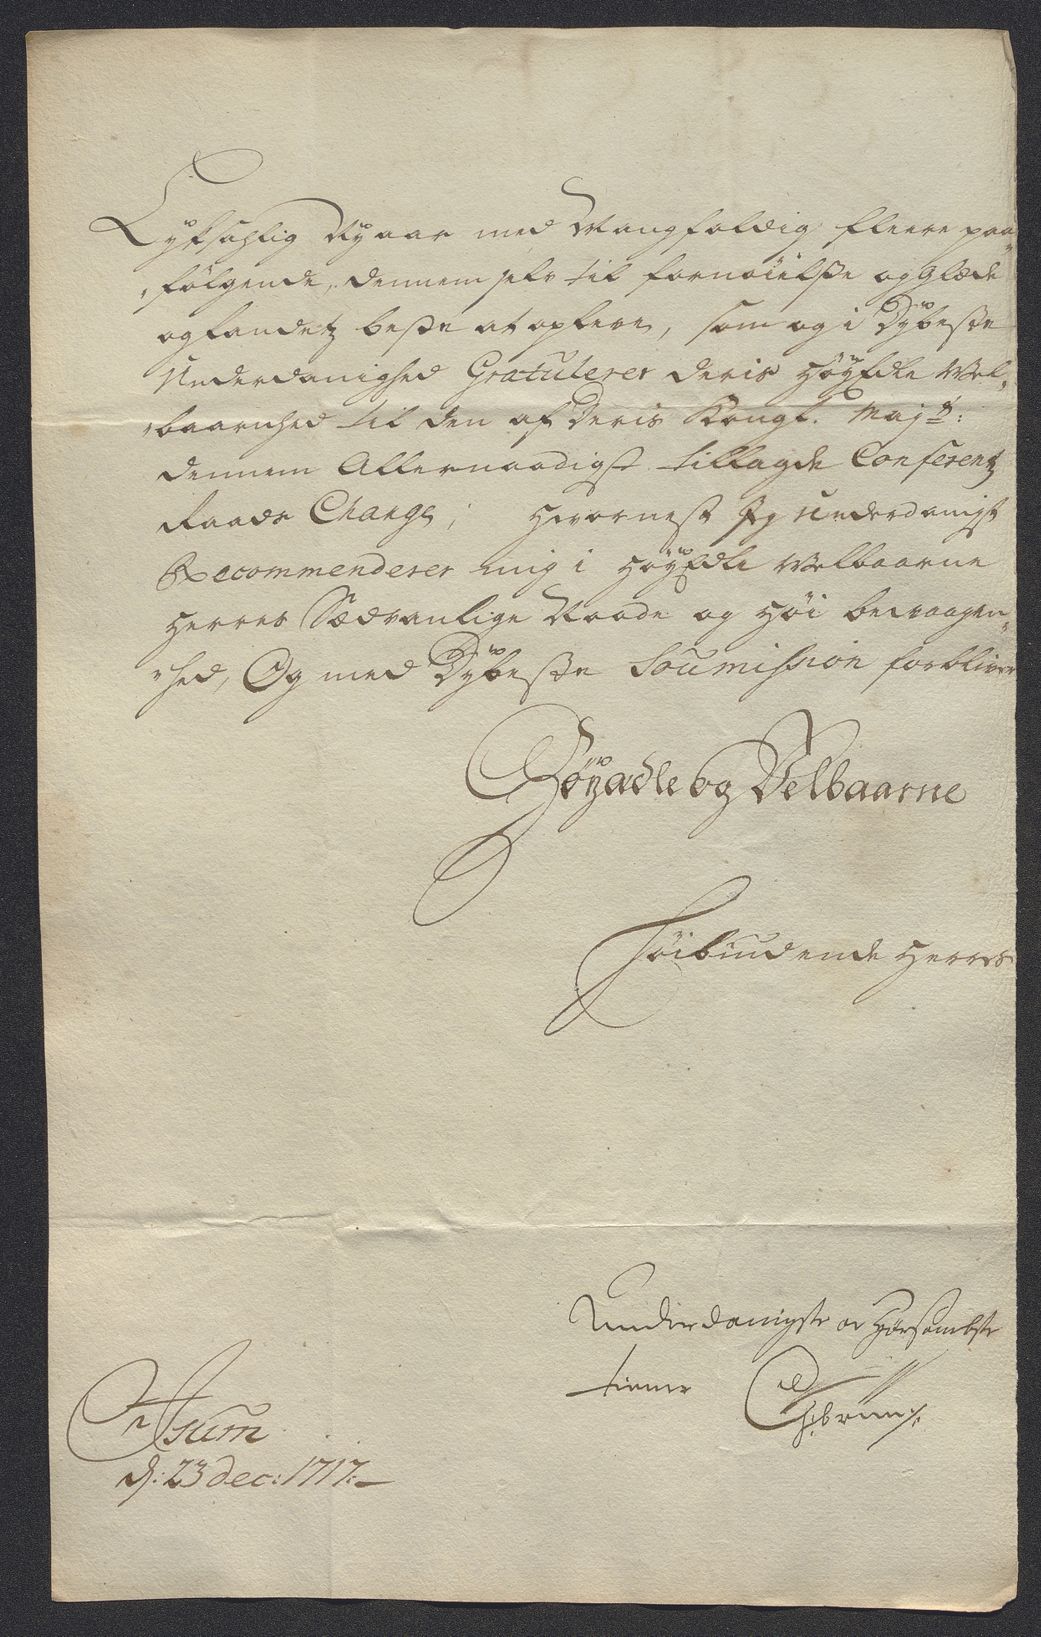 Lyksahlig Nyaar med Mangfoldig fleere paa-
følgende, dennem selv til fornøielse og Glæde
og landetz beste at opleve, som og i Dybeste
Underdanighed Gratulerer deris HöyEdle Vel-
baarnhed til den af Deris Kongl. Maj:tt:
dennem Allernaadigst tillagde Conferentz
Raads Charge; Hvornest Jeg Underdanigst
Recommenderer mig i HöyEdle Velbaarne
Herres Sædvanlige Naade og Høi bevaagen-
hed, Og med Dybeste Soumission forbliver
Höyædle og Velbaarne
Høibiudende Herres
Underdanigste og Hørsombste
tiener
Asum
d: 23 dec: 1717.